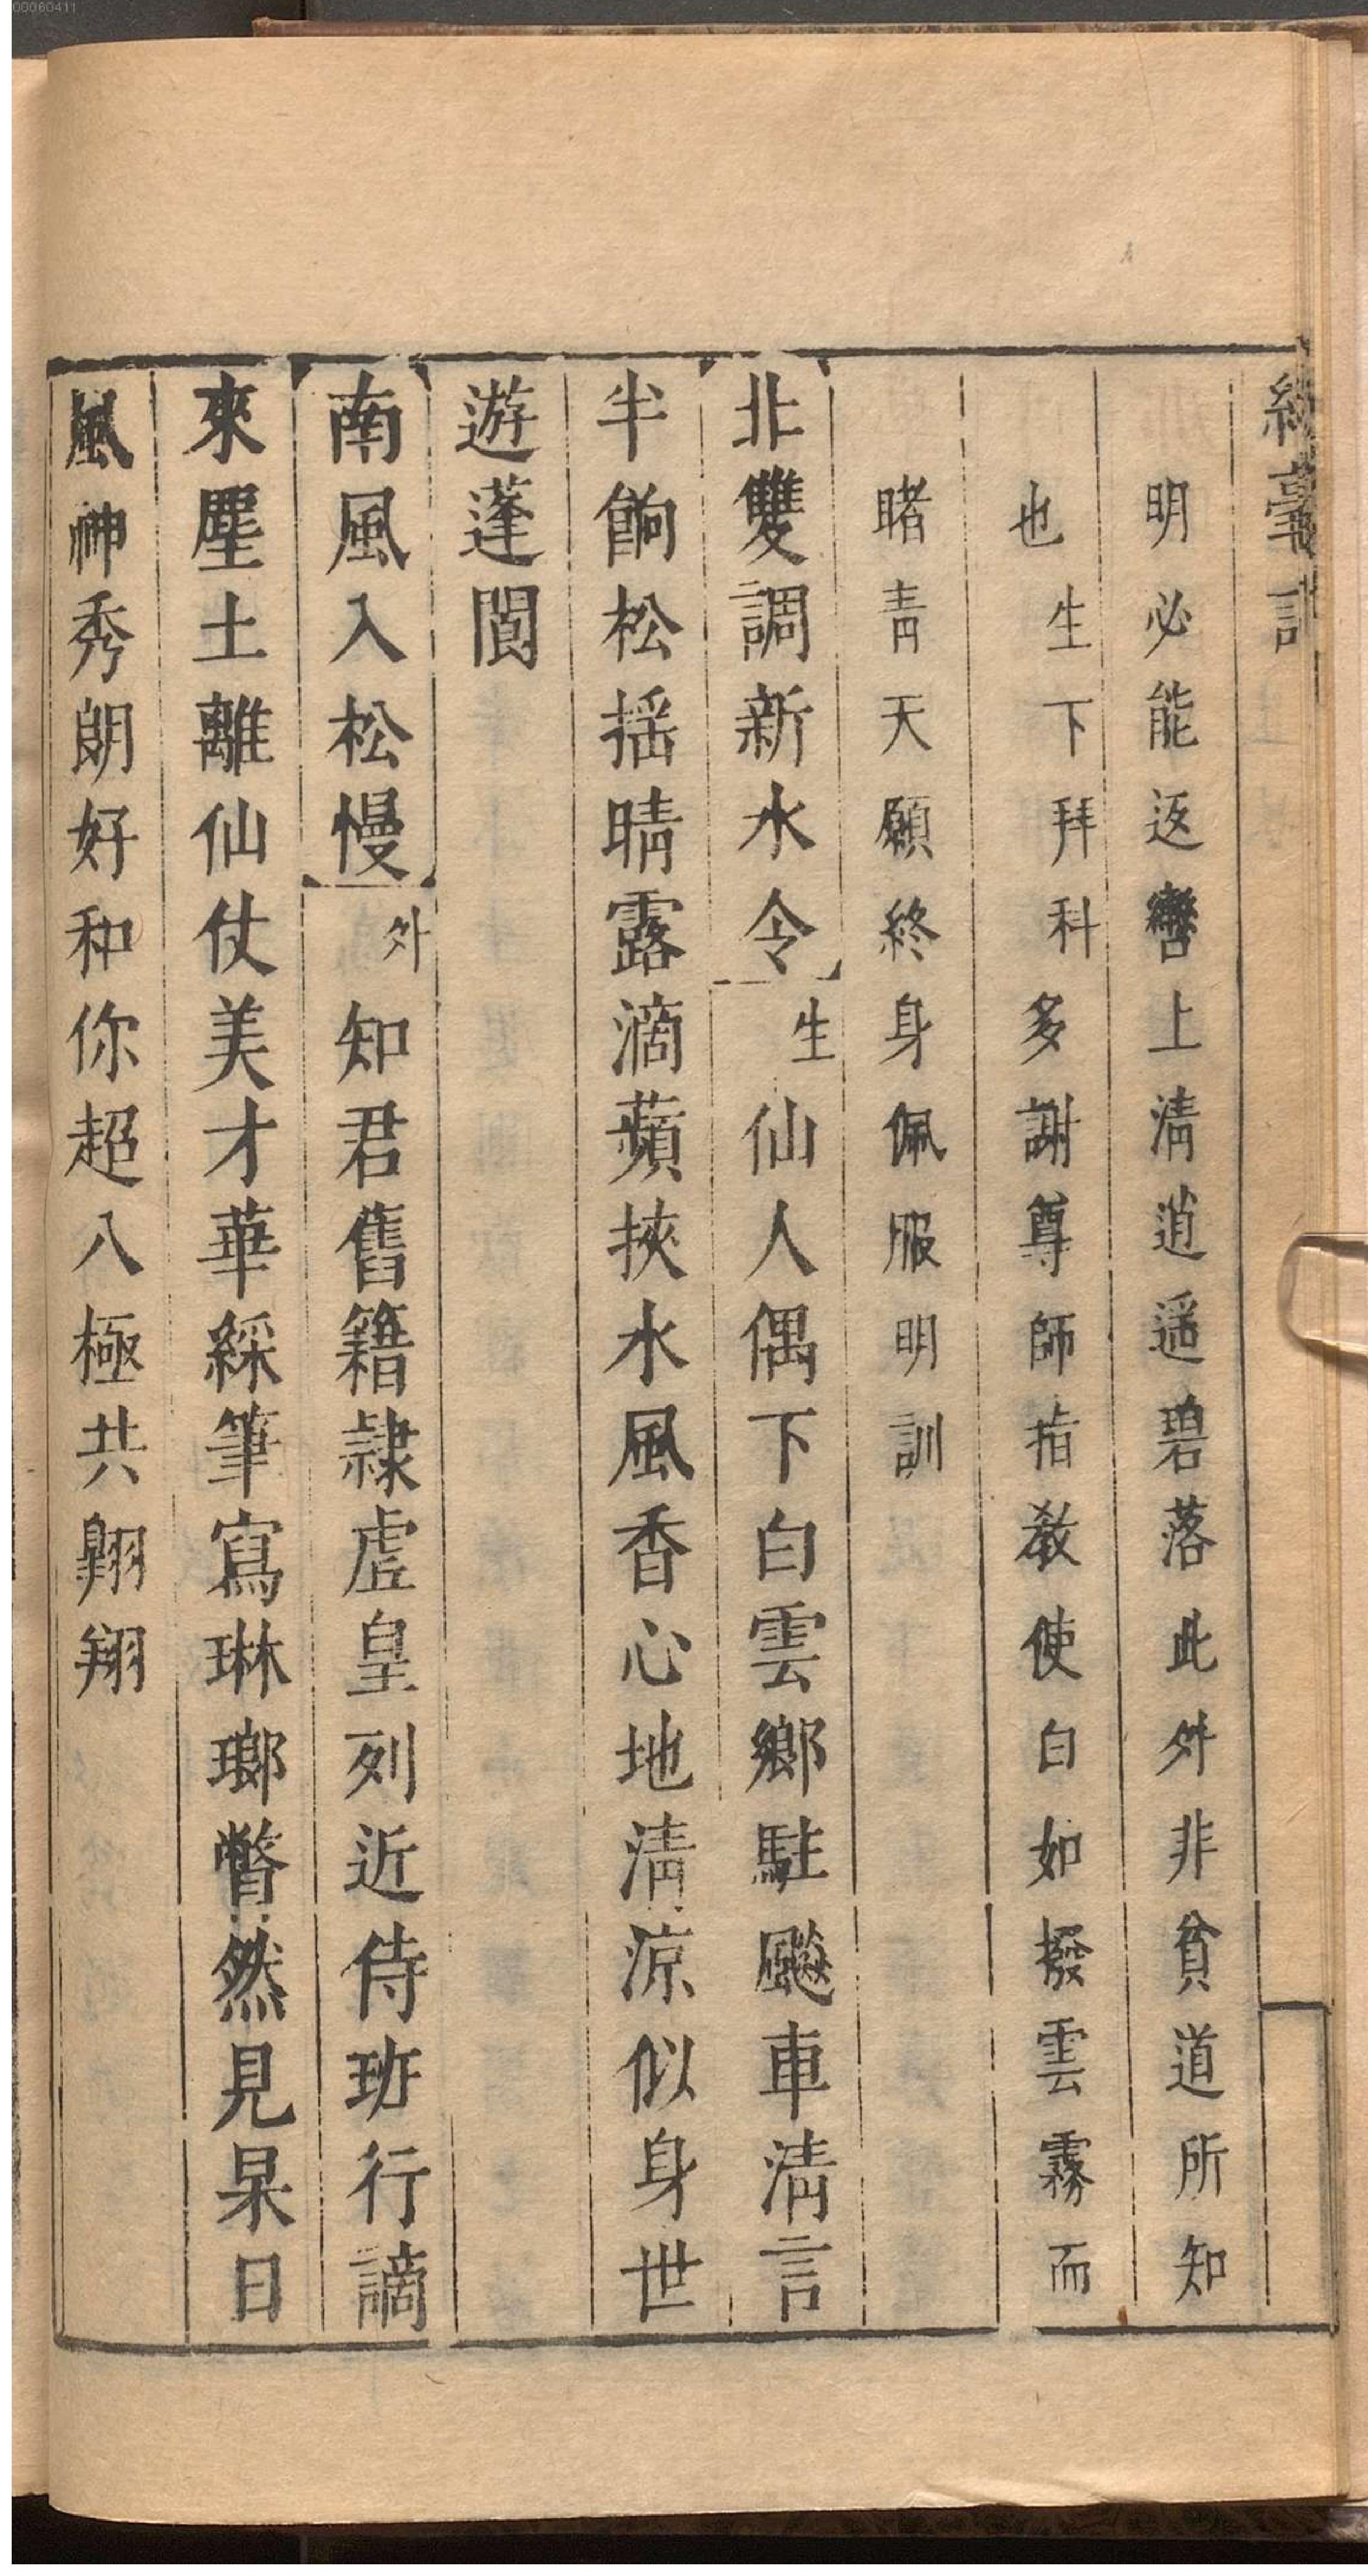 00060411
綵毫記
明必能返轡上淸逍遥碧落此外非貧道所知
也生下拜科多謝尊師指教使白如撥雲霧而
睹青天願終身佩服明訓
北雙調新水令生仙人偶下白雲鄉駐飈車淸言
半餉松揺晴露滴蘋挾水風香心地淸凉似身世
遊蓬閬
南風入松慢外知君舊籍隷虛皇列近侍班行謫
來塵土離仙仗美才華綵筆寫琳瑯瞥然見杲日
風神秀朗好和你超八極共翺翔